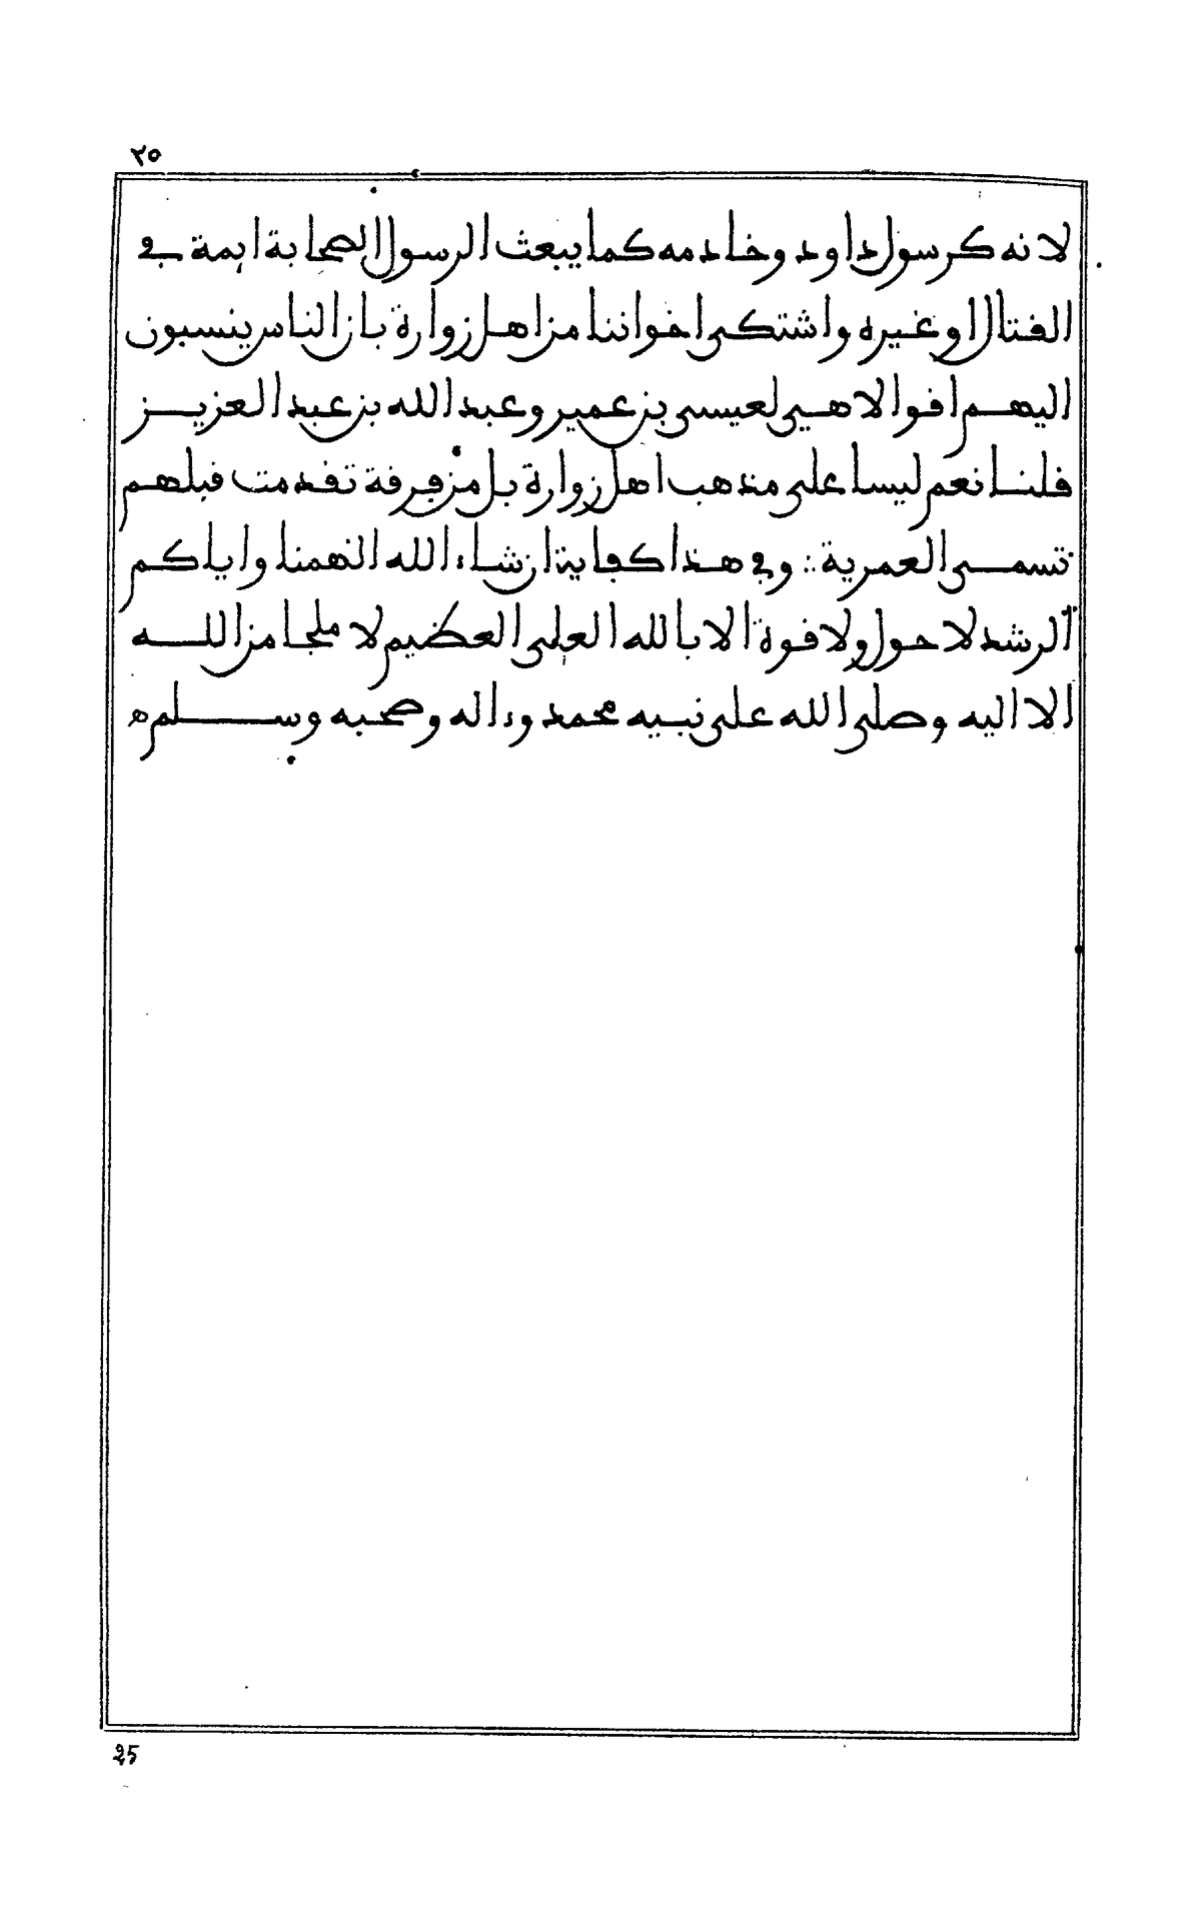 ٢٥
لانه كرسول داود وخادمه كما يبعث الرسول الصحابة ايمة في
القتال اوغيره واشتكى اخواننا من اهل زوارة بان الناس ينسبون
اليهم اقوالا هي لعيسى بن عمير وعبد الله بن عبد العزيز
قلنا نعم ليسا على مذهب اهل زوارة بل من فرقة تقدمت قبلهم
تسمى العمرية ∴ وفي هذا كفاية ان شاء الله الهمنا واياكم
الرشد لا حول ولا قوة الا بالله العلى العضيم لا ملجا من الله
الا اليه وصلى الله على نبيه محمد وءاله وصحبه وسلم ه
25